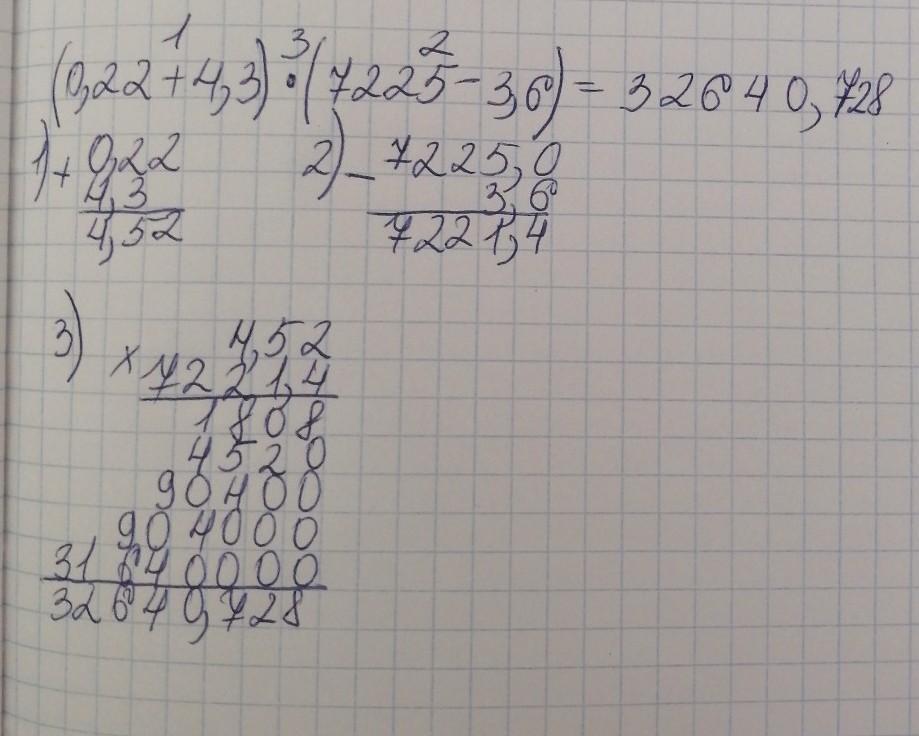 1 3 2
(0,22+4,3)·(7225-3,6)=32640,728
1) + 0,22 2) - 7225,0
4,3 3,6
4,52 7221,4
3) 4,52
x 7221,4
1808
4520
90400
904000
31640000
32640,728